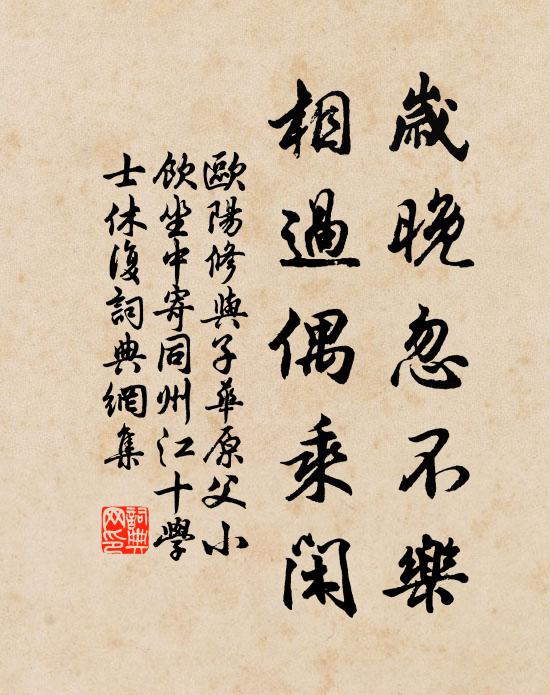 歲晚忽不樂
相過偶乘閑
歐陽修與子華原父小
飲坐中寄同州江十學
士休復詞典網集
詞典
网印